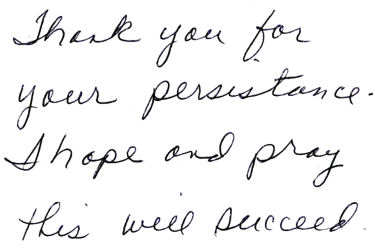 Thank you for
your persistance.
I hope and pray
this will succeed.